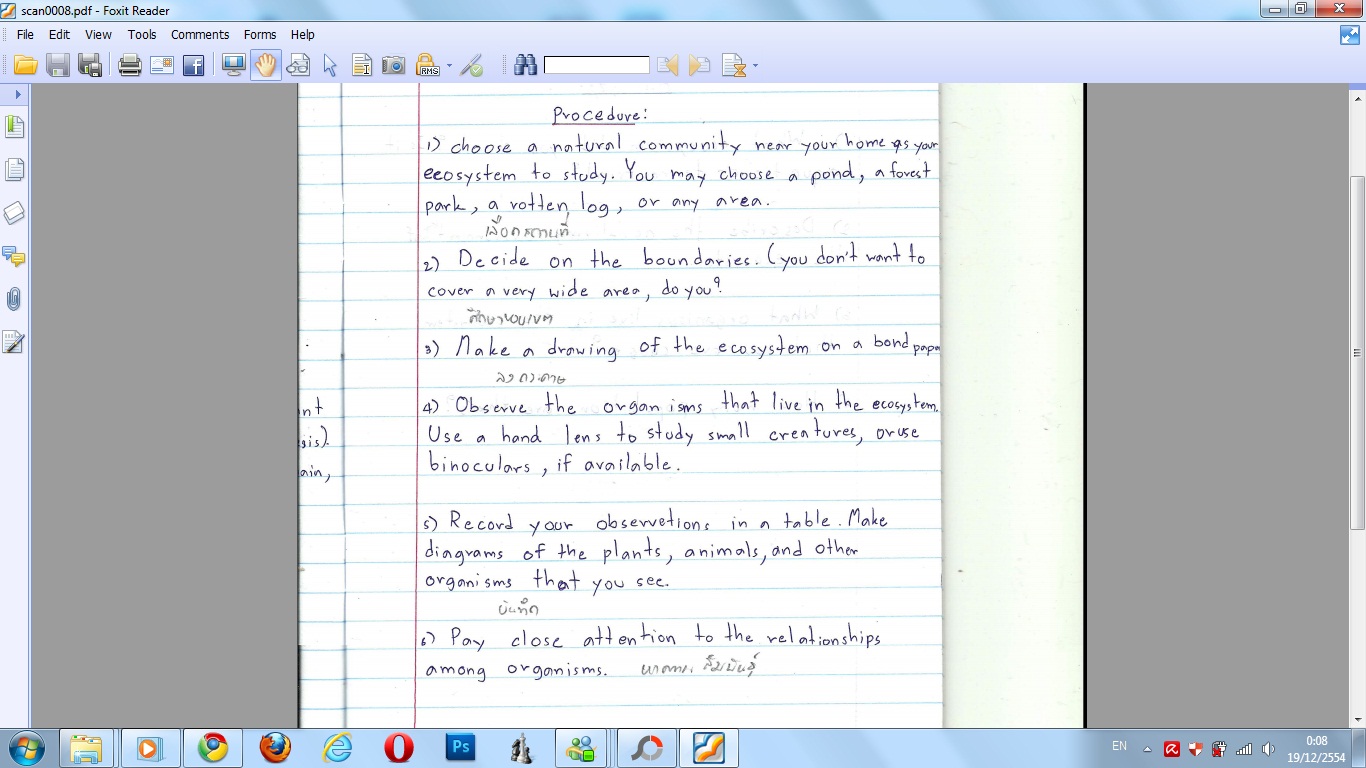 scan0008.pdf - Foxit Reader
File Edit View Tools Comments Forms Help
RMS
Procedure:
1) choose a natural community near your home as your
eecosystem to study. You may choose a pond, a forest
park, a rotten log, or any area.
เลือกสถานที่
2) Decide on the boundaries. (you don't want to
cover a very wide area, do you?
ศึกษาขอบเขต
3) Make a drawing of the ecosystem on a bond papa
ลงกระดาษ
nt
4) Observe the organisms that live in the ecosystem.
sis).
Use a hand lens to study small creatures, or use
ain,
binoculars, if available.
5) Record your observetions in a table. Make
diagrams of the plants, animals, and other
organisms that you see.
บันทึก
6) Pay close attention to the relationships
among organisms. สัมพันธ์
Ps
EN
0:08
19/12/2554